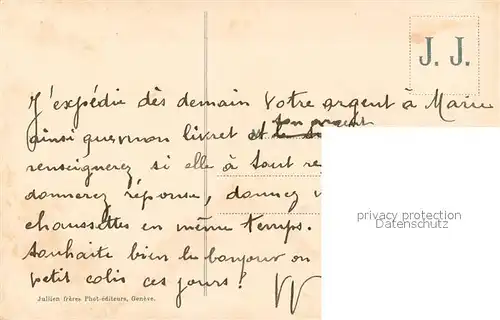 J. J.
J'expédie dès demain votre argent à Marie
son argent
ainsi que mon livret et
renseignerez si elle à tout
donnerez réponse, donnez
chaussettes en même temps.
souhaite bien le bonjour on
petit colis ces jours!
Jullien frères Phot-éditeurs, Genève.
privacy protection
ansichtskarten-center.de